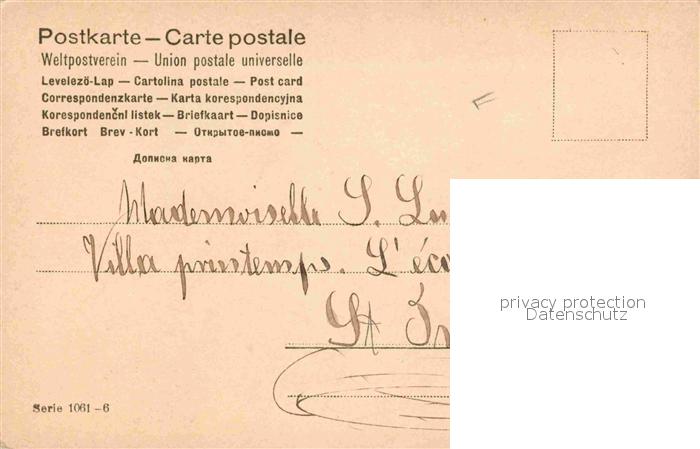 Postkarte — Carte postale
Weltpostverein — Union postale universelle
Levelező-Lap — Cartolina postale — Post card
Correspondenzkarte — Karta korespondencyjna
Korespondenční listek — Briefkaart — Dopisnice
Brefkort Brev-Kort — Открытое-письмо —
Дописна карта
Mademoiselle S. Lu
Villa printemps. L'éco
St
privacy protection
Datenschutz
Serie 1061-6